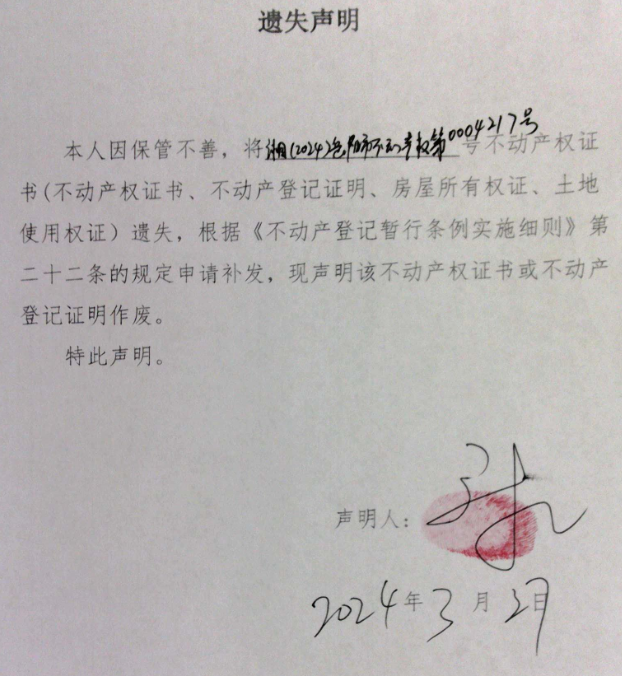 遗失声明
本人因保管不善，将湘(2024)岳阳市不动产权第0004217号号不动产权证
书(不动产权证书、不动产登记证明、房屋所有权证、土地
使用权证）遗失，根据《不动产登记暂行条例实施细则》第
二十二条的规定申请补发，现声明该不动产权证书或不动产
登记证明作废。
特此声明。
声明人：
2024年3月27日